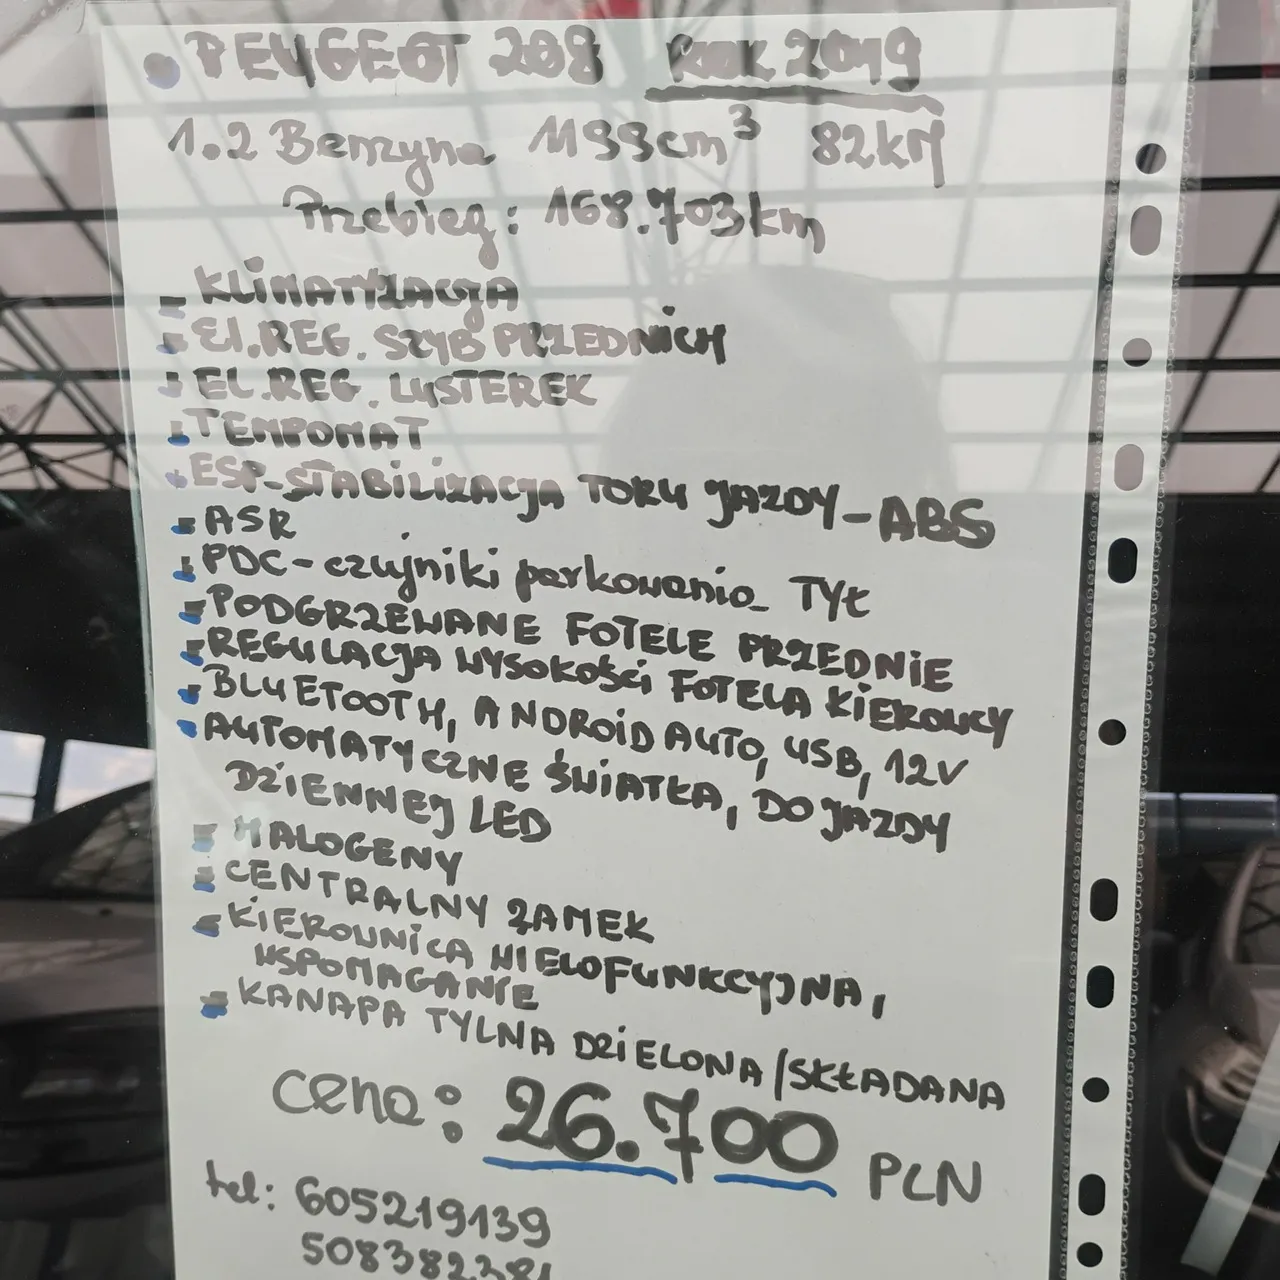 PEUGEOT 208 ROK 2019
1.2 Benzyna 1199cm³ 82kM
Przebieg: 168.703km
- KLIMATYZACJA
- El.REG. SZYB PRZEDNICH
- EL.REG. LUSTEREK
- TEMPOMAT
- ESP-STABILIZACJA TORU JAZDY-ABS
- ASR
- PDC-czujniki parkowania TYŁ
- PODGRZEWANE FOTELE PRZEDNIE
- REGULACJA WYSOKOŚCI FOTELA KIEROWCY
- BLUETOOTH, ANDROID AUTO, USB, 12V
- AUTOMATYCZNE ŚWIATŁA, DO JAZDY
DZIENNEJ LED
- HALOGENY
- CENTRALNY ZAMEK
- KIEROWNICA WIELOFUNKCYJNA,
WSPOMAGANIE
- KANAPA TYLNA DZIELONA/SKŁADANA
cena: 26.700 PLN
tel: 605219139
508382381